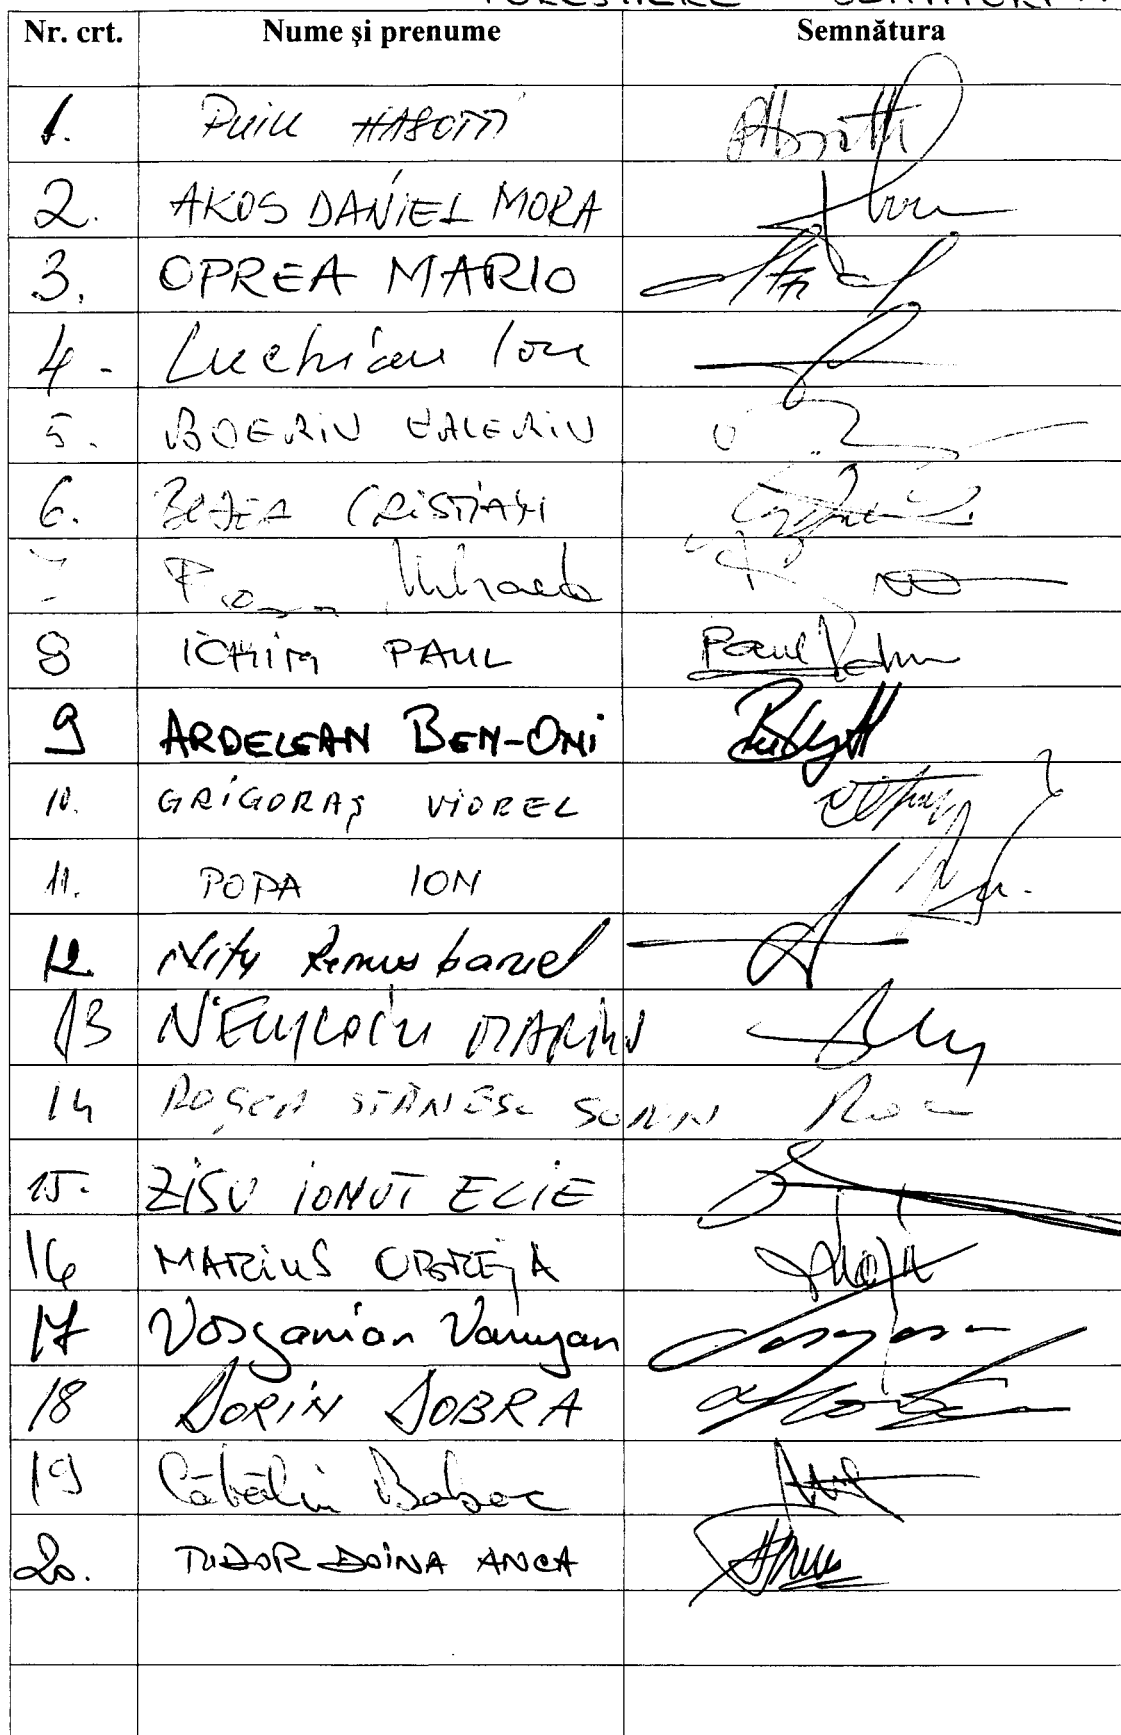 Nr. crt. Nume și prenume Semnătura
1. PUIU HAȘOTTI
2. AKOS DANIEL MORA
3. OPREA MARIO
4. Luchian Ion
5. BOERIU VALERIU
6. BODEA CRISTIAN
Popa Mihaela
8 ICHIM PAUL Paul
9 ARDELEAN BEN-ONI
10. GRIGORAȘ VIOREL
11. POPA ION
12 Niță Remus Daniel
13 NECULOIU MARIUS
14 ROȘCA STĂNESC SORIN
15. ZISU IONUT ELIE
16 MARIUS OBREJA
17 Vosganian Varujan
18 DORIN DOBRA
19 Cătălin Boboc
20. TUDOR DOINA ANCA